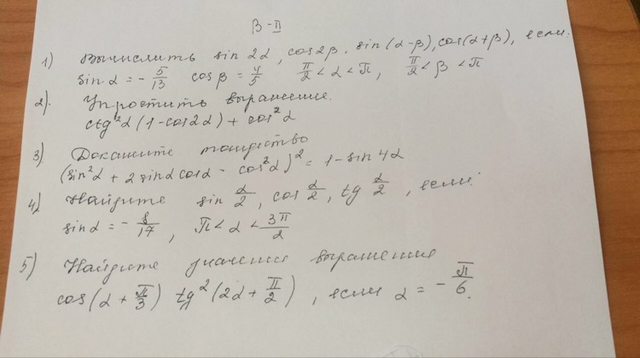 В-II
1) Вычислить sin 2α, cos2β. sin(α-β), cos(α+β), если.
sin α = - 5/13 cos β = 4/5 π/2 < α < π, π/2 < β < π
2). Упростить выражение.
ctg²α (1 - cos 2α) + cos²α
3) Докажите тождество
(sin²α + 2 sinα cosα - cos²α)² = 1 - sin 4α
4) Найдите sin α/2, cos α/2, tg α/2, если:
sin α = - 8/17, π < α < 3π/2
5) Найдите значения выражения
cos(α + π/3) tg²(2α + π/2), если α = - π/6.